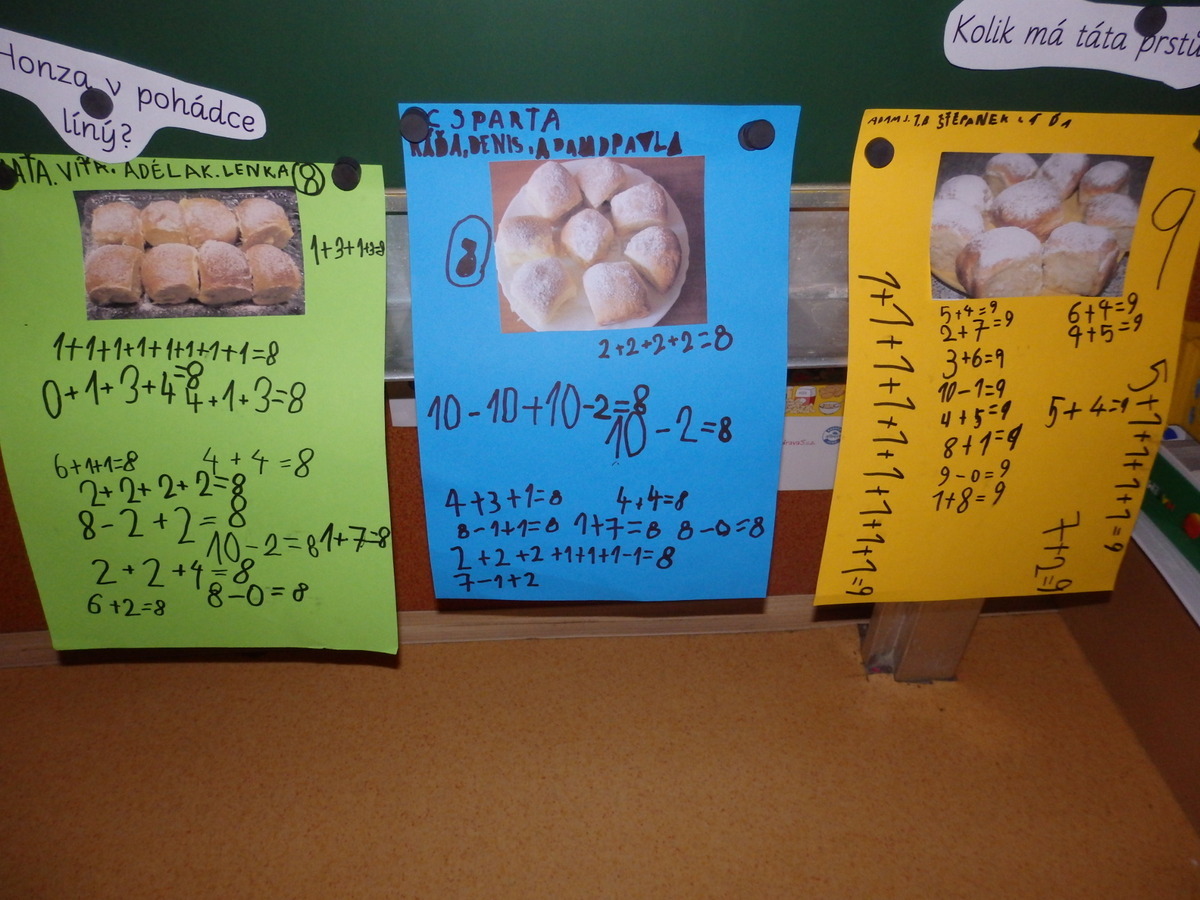 Honza v pohádce
líný?
Kolik má táta prstů
KÁŤA, VÍŤA, ADÉLA K. LENKA 8
1+3+1+3=8
1+1+1+1+1+1+1+1=8
0+1+3+4=8
4+1+3=8
6+1+1=8
4+4=8
2+2+2+2=8
8-2+2=8
10-2=8
1+7=8
2+2+4=8
6+2=8
8-0=8
SPARTA
KÁŤA, DENIS, ADAM D PAVLA
8
2+2+2+2=8
10-10+10-2=8
10-2=8
4+3+1=8
4+4=8
8-1+1=8
1+7=8
8-0=8
2+2+2+1+1+1-1=8
7-1+2
ADAM ŠTĚPÁNEK
9
1+1+1+1+1+1+1+1+1=9
5+4=9
2+7=9
3+6=9
10-1=9
4+5=9
8+1=9
9-0=9
1+8=9
6+4=9
4+5=9
5+4=9
5+1+1+1+1=9
7+2=9